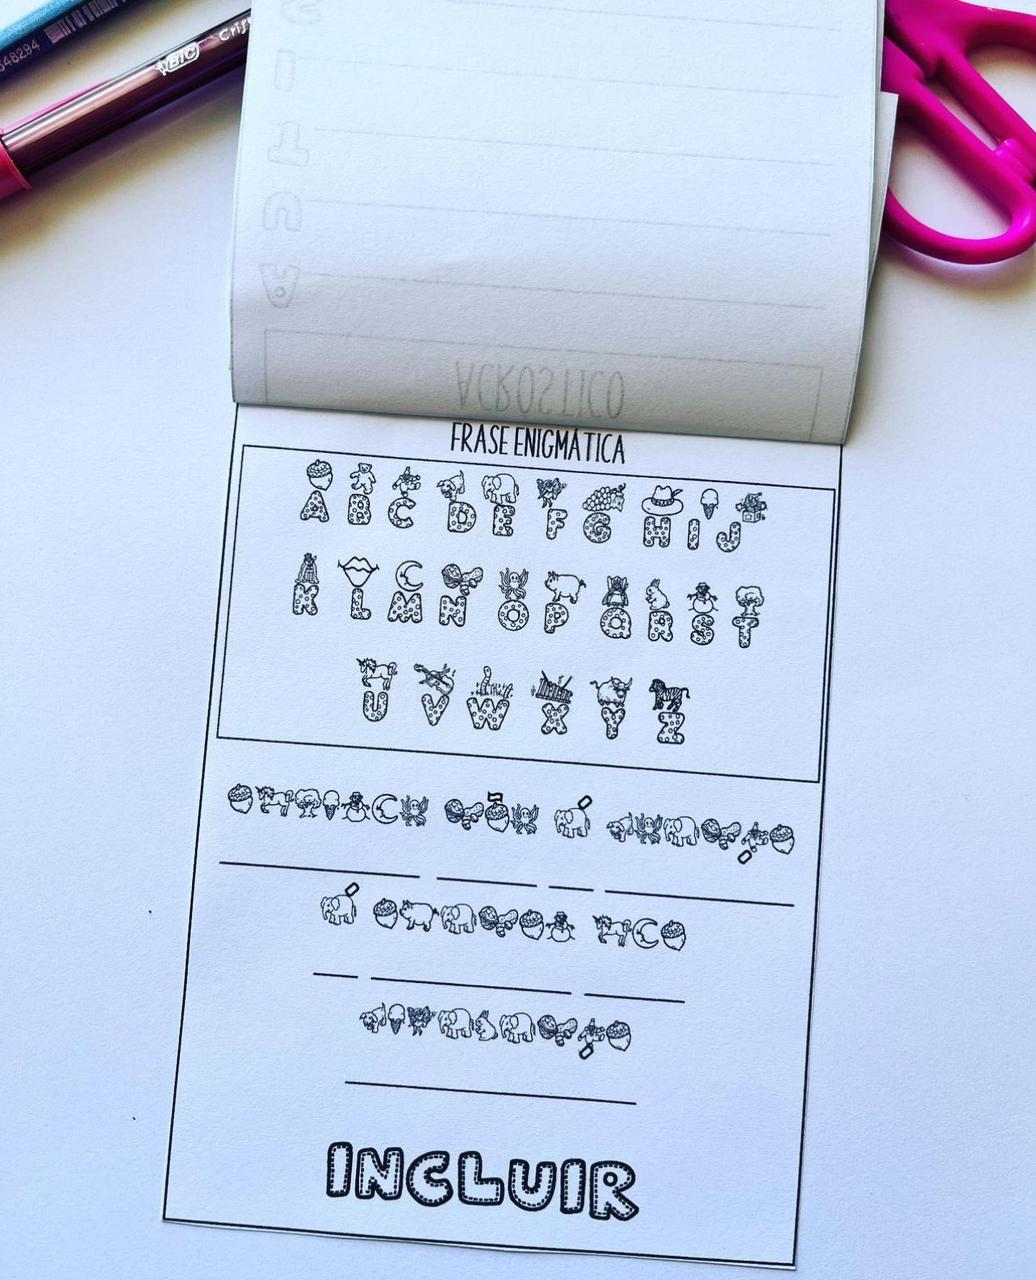 548294
BIC Cris
ACRÓSTICO
FRASE ENIGMÁTICA
A B C D E F G H I J
K L M N O P Q R S T
U V W X Y Z
INCLUIR